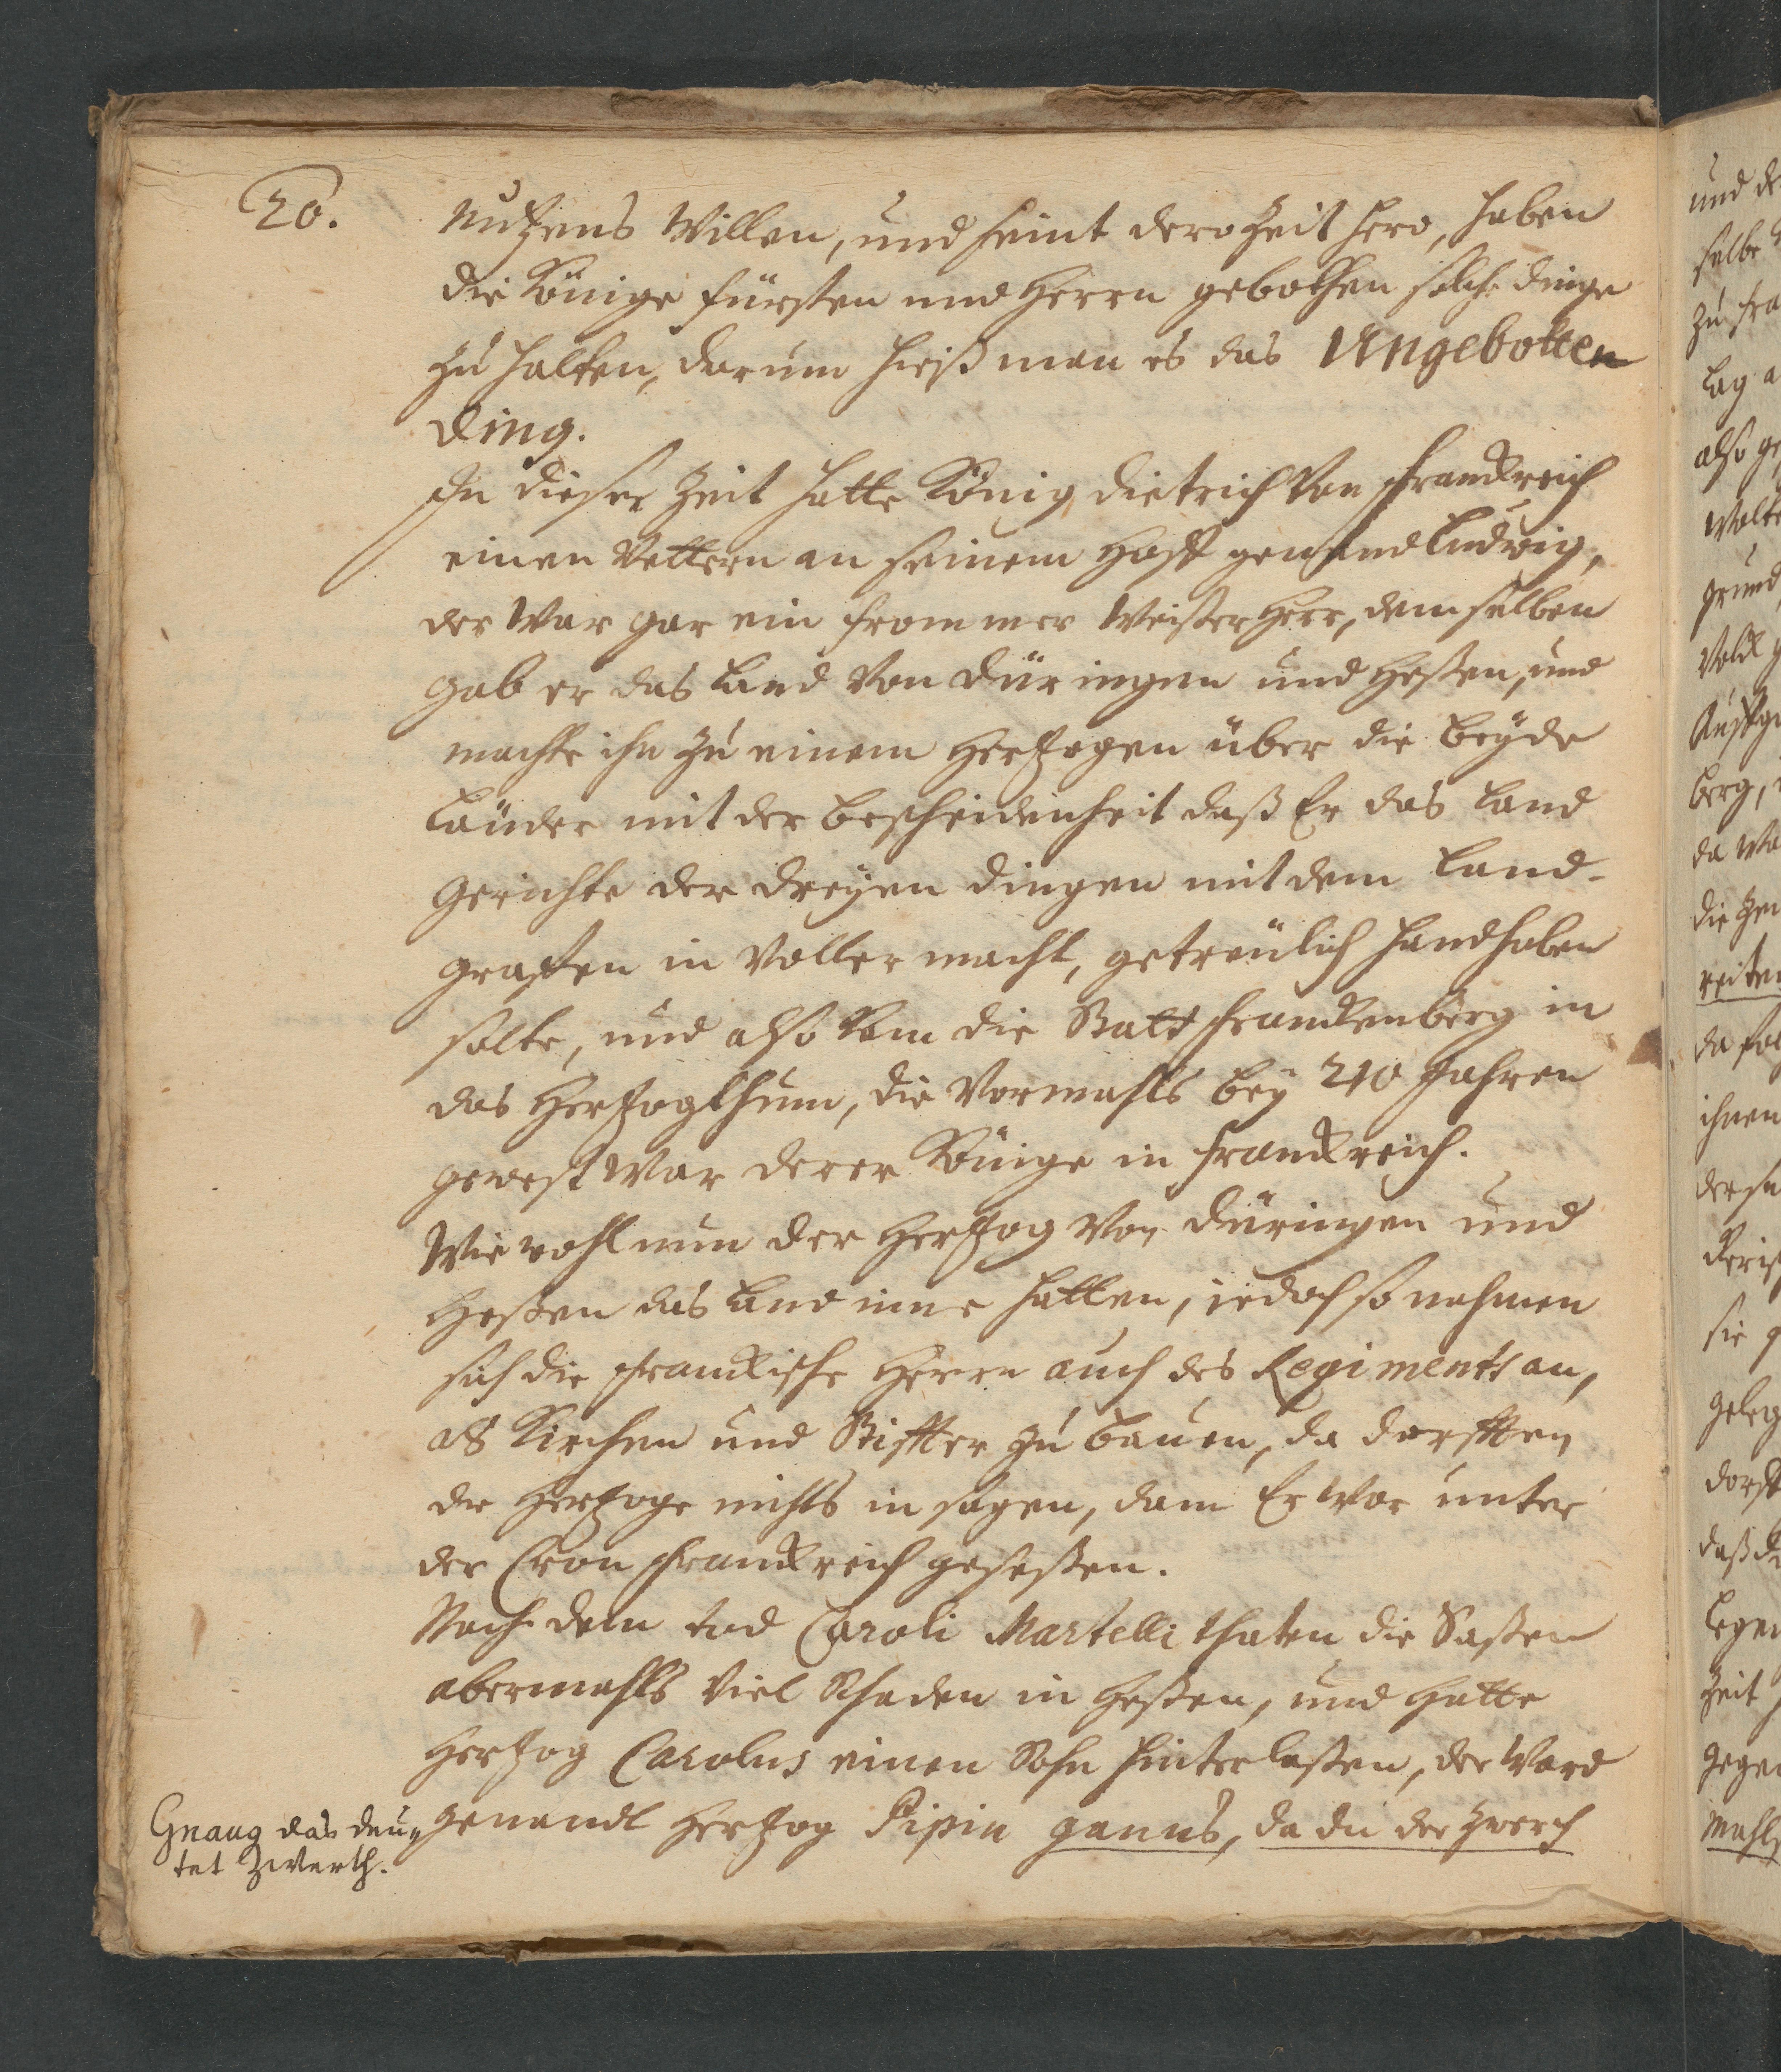 20.
Nutzens Willen, und seint dero Zeit hero, haben
die Könige fürsten und Herrn gebothen solche dinge
zu halten, darum hieß man es das Ungebotten
Ding.
In dieser Zeit hatte König Dietrich von Franckreich
einen Vettern an seinem Hoff genand Ludwig,
der war gar ein frommer Weißer Herr, demselben
gab er das Land von Düringen und Heßen, und
machte ihn zu einem Hertzogen über die beyde
Länder mit der bescheidenheit daß Er das Land
Gerichte der dreyen dingen mit dem Land-
graffen in voller macht, getreulich handhaben
solte, und also kam die Statt Franckenberg in
das Hertzogthum, die vormahls bey 210 Jahren
gewest war derer Könige in Franckreich.
Wie wohl nun der Hertzog von Düringen und
Heßen das Land inne hatten, iedoch so nahmen
sich die Franckische Herrn auch des Regiments an,
als Kirchen und Stiffter zu bauen, da dorfften
die Hertzoge nichts in sagen, dann Er war unter
der Cron Franckreich geseßen.
Nach dem tod Caroli Martelli thaten die Saßen
abermahls viel Schaden in Heßen, und hatte
Hertzog Carolus einen Sohn hinterlaßen, der ward
genandt Hertzog Pipin ganus, da du der Zwerch
Gnaug das deu-
tet Zwerch.
und de
selbe
zu fra
lag a
also ge
wolte
grund
Volck g
berg,
da wa
die
reiten
da
ihnen
der
sie g
geleg
daß
legen
Zeit
gegen
mahls